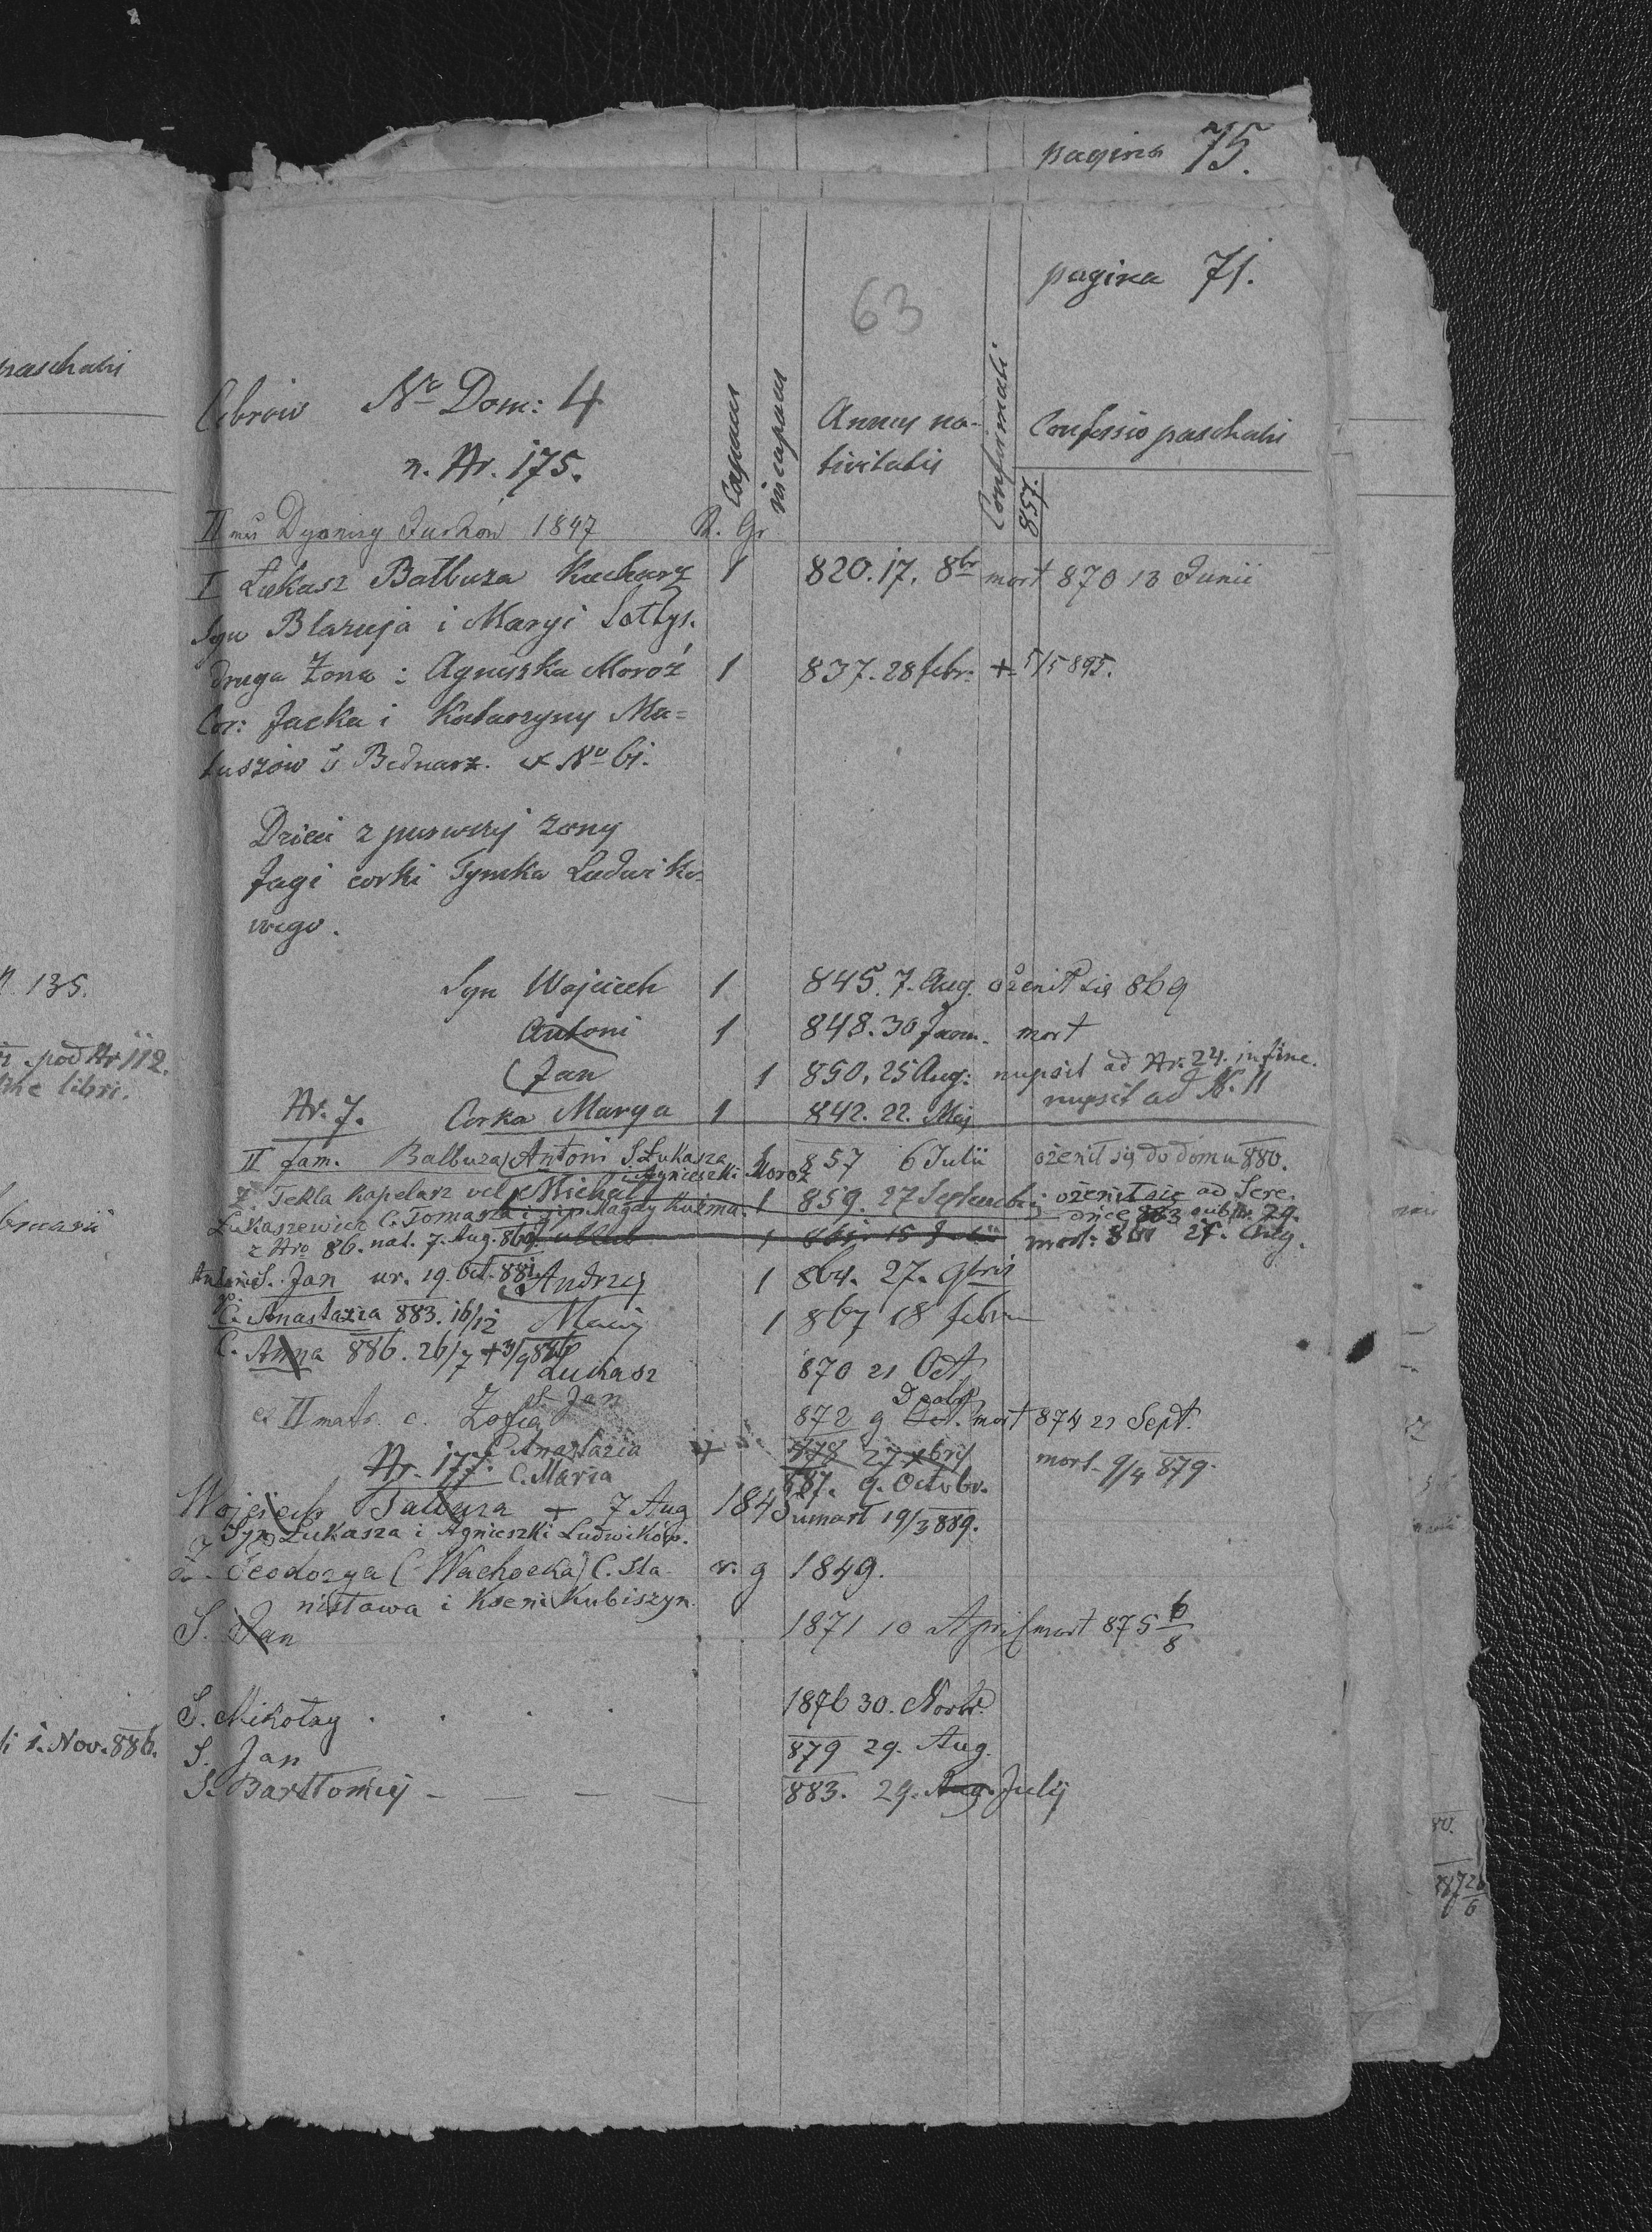 pagina 75.
pagina 71.
63
paschalis
Cebrow Nr Dom: 4
n. Nr. 175.
Capaces
incapaces
Annus na-
tivitatis
Confirmati
Confessio paschalis
857.
II Dyonizy Juśków 1847 R. Gr
I Łukasz Bałbuza Kucharz 1 820. 17. 8br mort 870 13 Junii
Syn Błazeja i Maryi Sołtys.
druga Żona : Agnieszka Moroź 1 837. 28 febr. + 5/5 895.
Cor: Jacka i Katarzyny Ma=
tuszow Bednarz. Nro 61.
Dzieci z pierwszej żony
Jagi corki Tymka Ludwiko-
wego.
n. 135.
Syn Wojciech 1 845. 7. Aug. ożenił się 869
Antoni 1 848. 30 Jan. mort
pod Nr 112.
Jan 1 850. 25 Aug: nupsit ad Nr. 24. in fine.
libri.
Nr. 7. Corka Marya 1 842. 22. Maj nupsit ad N. 11
II fam. Bałbuza Antoni S. Łukasza i Agnieszki Moroź 857 6 Julii ożenił się do domu 880.
Ż. Tekla Kapelarz vel Michał 1 859. 27 Septembris ożenił się ad
Łukaszewicz C. Tomasza i Magdy Kuźma. 883 sub Nr. 29.
z Nro 86. nat. 7. Aug. 860 1 861 15 mort: 27. Aug.
Antonie S. Jan ur. 19. Oct. 881 Andrzej 1 864. 27. 9bris
C. Anastazia 883. 16/12 Maciej 1 867 18 febr
C. Anna 886. 26/7 + 3/9 886 Łukasz 870 21 Oct
S. Jan
II matr. c. Zofia 872 9 Oct. mort 874 21 Sept.
Nr. 177. C. Anastazia + 878 27 xbris mort. 9/4 879.
C. Maria 887. 9. Octobr.
Wojciech Bałbuza + 7 Aug 1845 umarł 19/3 889.
Syn Łukasza i Agnieszki Ludwików.
Teodozya (Wachocka) C. Sta- r. g 1849.
nisława i Kseni Kubiszyn.
S. Jan 1871 10 April mort 875 6/8
S. Mikołay . . . . 1876 30. Novbr.
1. Nov. 886.
S. Jan 879 29. Aug.
S. Bartłomiej - - - - 883. 29. Aug. Julij